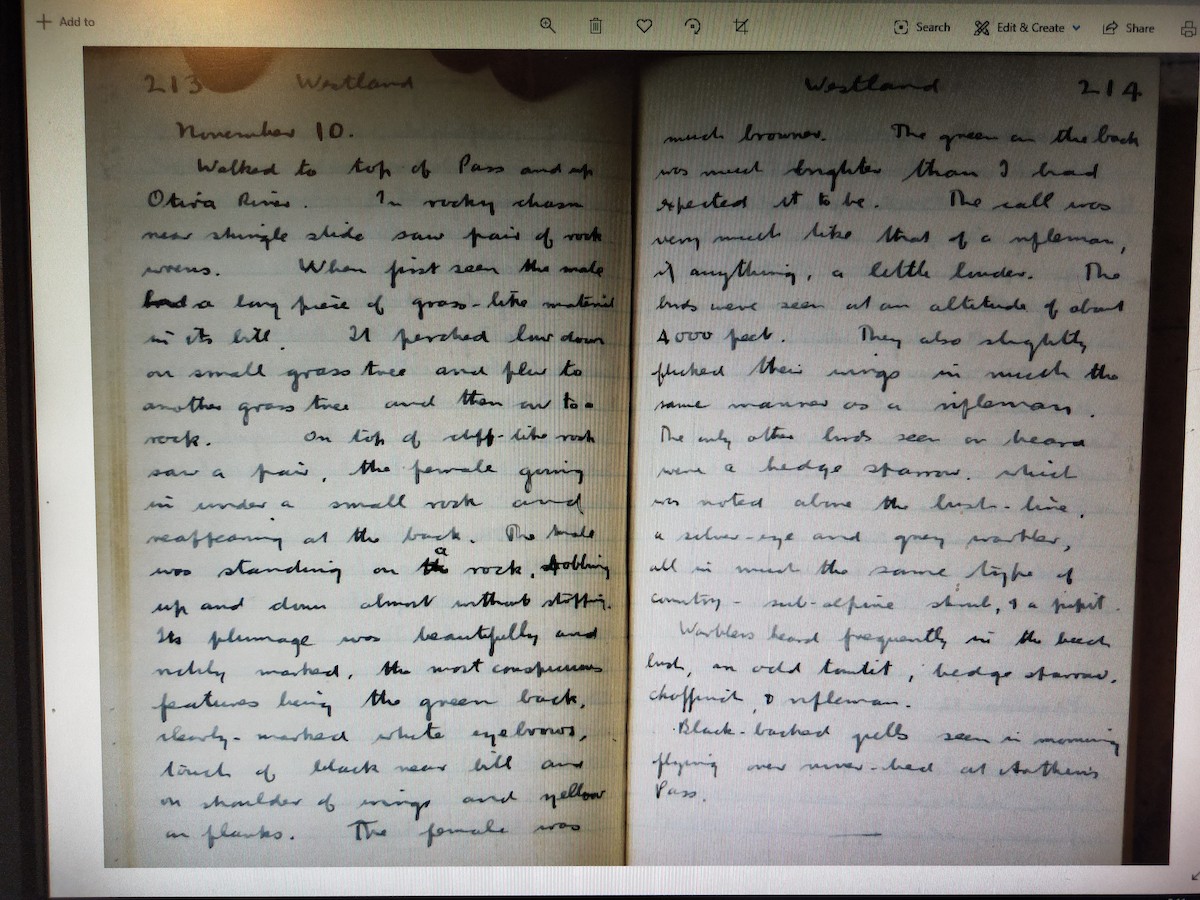 Add to
Search
Edit & Create
Share
213 Westland
November 10.
Walked to top of Pass and up
Otira River. In rocky chasm
near shingle slide saw pair of rock
wrens. When first seen the male
had a long piece of grass-like material
in its bill. It perched low down
on small grass tree and flew to
another grass tree and then on to a
rock. On top of cliff-like rock
saw a pair, the female going
in under a small rock and
reappearing at the back. The male
was standing on a rock, bobbing
up and down almost without stopping.
Its plumage was beautifully and
richly marked, the most conspicuous
features being the green back,
clearly-marked white eyebrows,
touch of black near bill and
on shoulder of wings and yellow
on flanks. The female was
Westland 214
much browner. The green on the back
was much brighter than I had
expected it to be. The call was
very much like that of a rifleman,
if anything, a little louder. The
birds were seen at an altitude of about
4000 feet. They also slightly
flicked their wings in much the
same manner as a rifleman.
The only other birds seen or heard
were a hedge sparrow, which
was noted above the bush-line,
a silver-eye and grey warbler,
all in much the same type of
country - sub-alpine shrub, & a pipit.
Warblers heard frequently in the beech
bush, an odd tomtit, hedge sparrow,
chaffinch, & rifleman.
Black-backed gulls seen in morning
flying over river-bed at Arthur's
Pass.